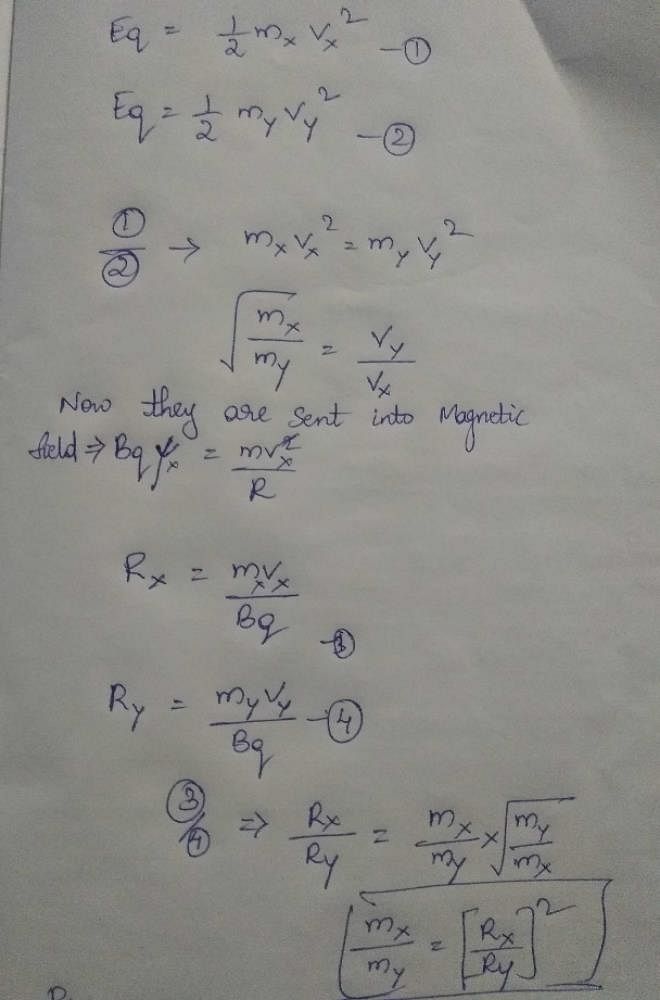 Eq = 1/2 m_x v_x^2 —①
Eq = 1/2 m_y v_y^2 —②
①/② → m_x v_x^2 = m_y v_y^2
√(m_x/m_y) = v_y/v_x
Now they are sent into Magnetic
field ⇒ Bq v_x = mv_x^2/R
R_x = m_x v_x/Bq —③
R_y = m_y v_y/Bq —④
③/④ ⇒ R_x/R_y = m_x/m_y × √(m_y/m_x)
m_x/m_y = [R_x/R_y]^2